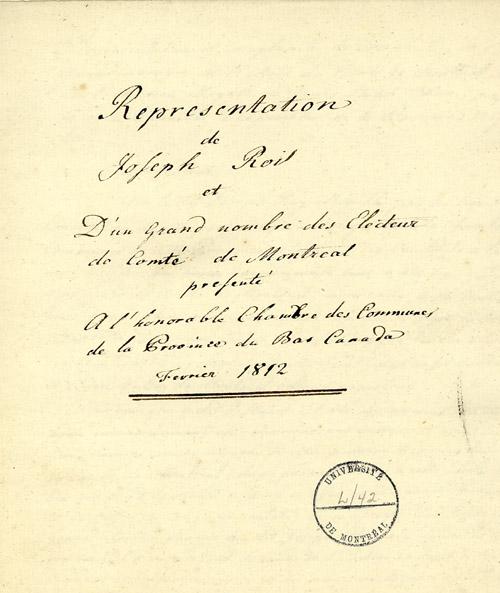 Representation
de
Joseph Roil
et
D'un Grand nombre des Electeur
de Comté de Montreal
presenté
A l'honorable Chambre des Communes
de la Province du Bas Canada
Fevrier 1812
UNIVERSITÉ
L/42
DE MONTRÉAL